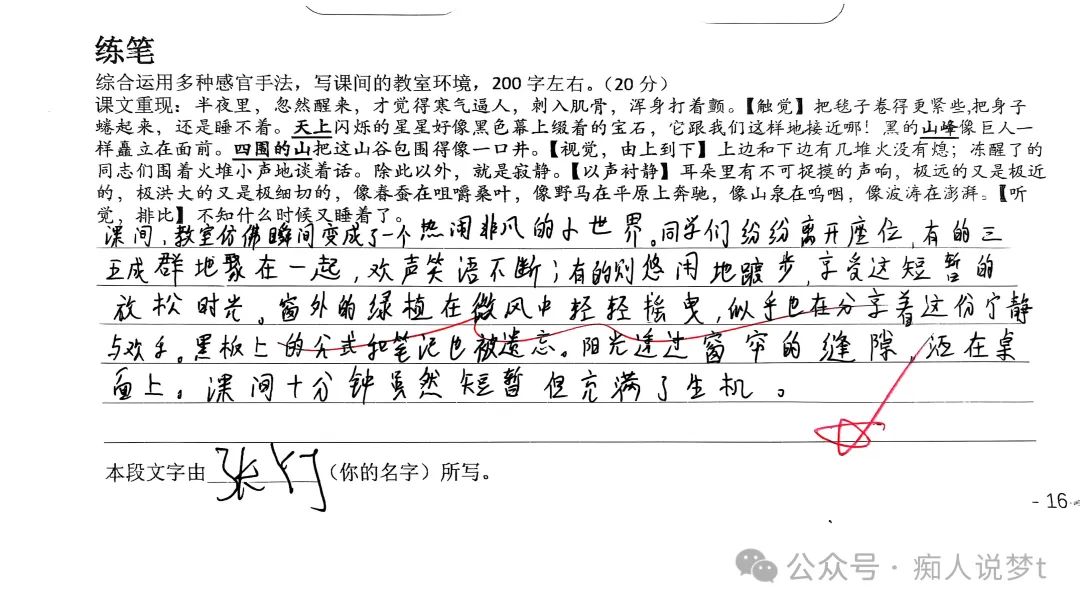 练笔
综合运用多种感官手法，写课间的教室环境，200 字左右。（20 分）
课文重现：半夜里，忽然醒来，才觉得寒气逼人，刺入肌骨，浑身打着颤。【触觉】把毯子卷得更紧些,把身子
蜷起来，还是睡不着。天上闪烁的星星好像黑色幕上缀着的宝石，它跟我们这样地接近哪！黑的山峰像巨人一
样矗立在面前。四围的山把这山谷包围得像一口井。【视觉，由上到下】上边和下边有几堆火没有熄；冻醒了的
同志们围着火堆小声地谈着话。除此以外，就是寂静。【以声衬静】耳朵里有不可捉摸的声响，极远的又是极近
的，极洪大的又是极细切的，像春蚕在咀嚼桑叶，像野马在平原上奔驰，像山泉在呜咽，像波涛在澎湃。【听
觉，排比】不知什么时候又睡着了。
课间，教室仿佛瞬间变成了一个热闹非凡的小世界。同学们纷纷离开座位，有的三
五成群地聚在一起，欢声笑语不断；有的则悠闲地踱步，享受这短暂的
放松时光。窗外的绿植在微风中轻轻摇曳，似乎也在分享着这份宁静
与欢乐。黑板上的公式和笔记也被遗忘。阳光透过窗帘的缝隙，洒在桌
面上。课间十分钟虽然短暂但充满了生机。
本段文字由 张（你的名字）所写。
- 16 -
公众号 · 痴人说梦t